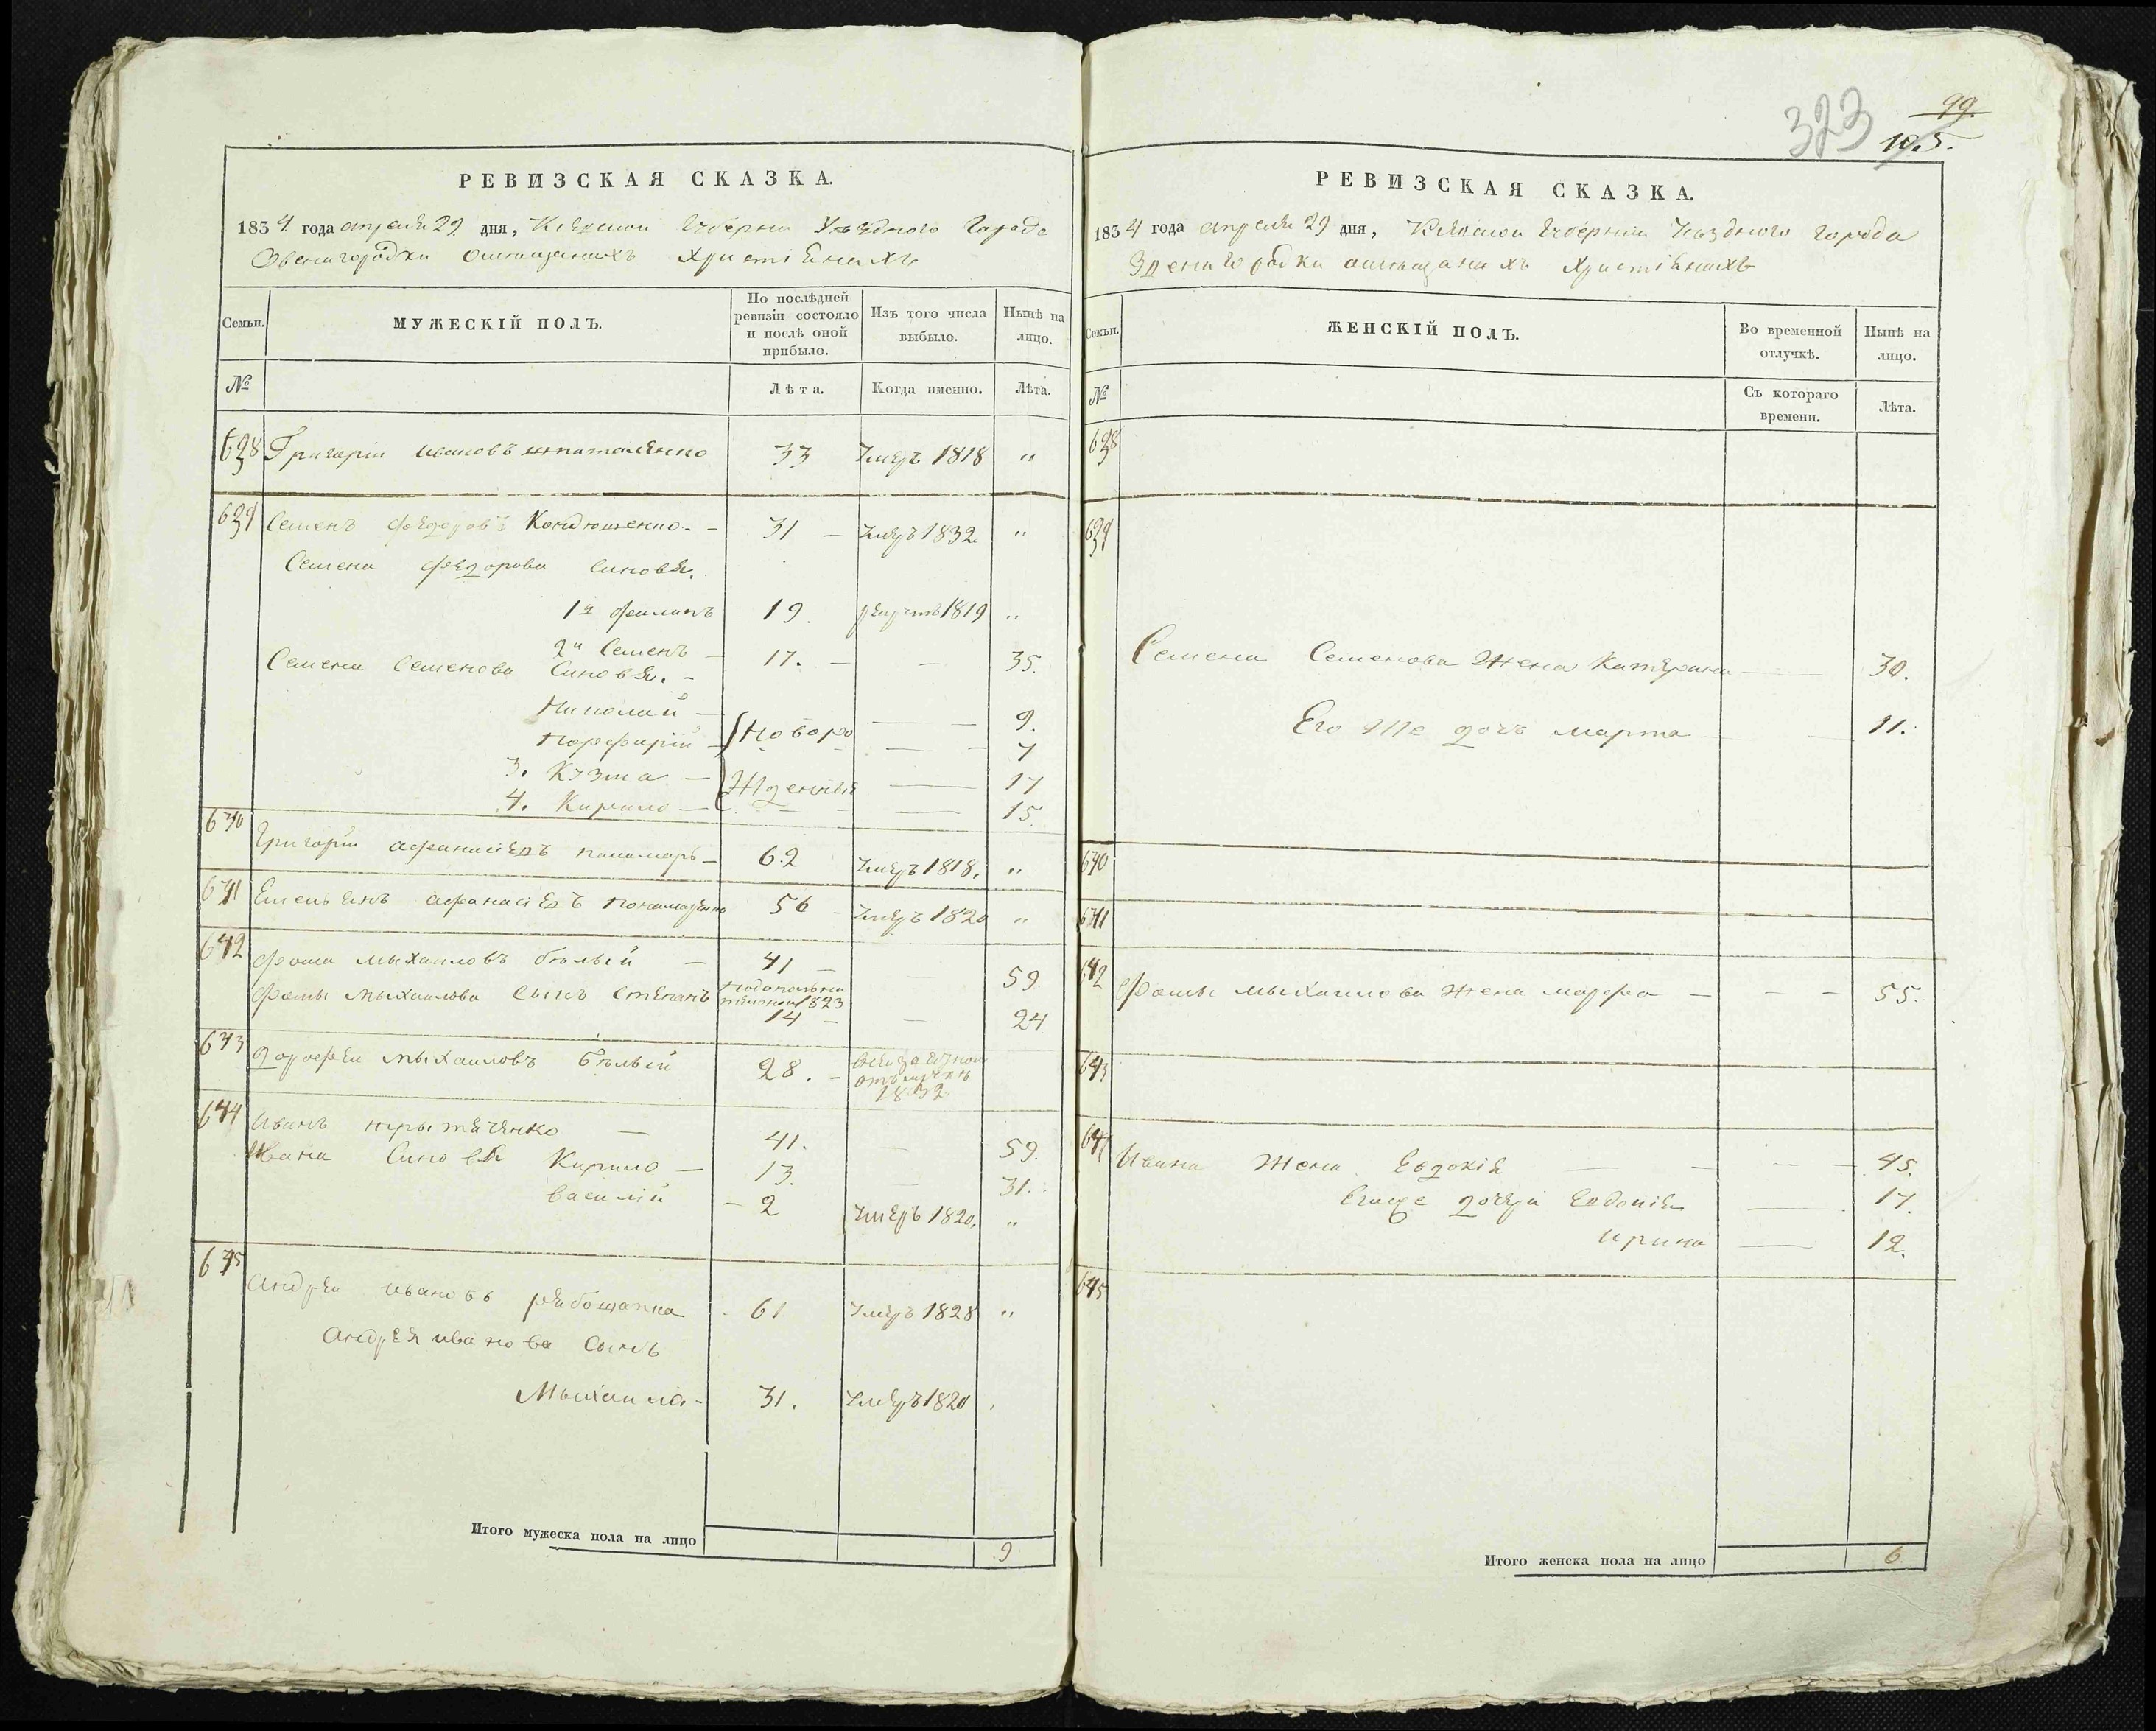 323
99.
105.
РЕВИЗСКАЯ СКАЗКА.
1834 года апреля 29 дня, Киевской Губернии Уѣздного Города
Звенигородки омещанахъ христіянахъ
Семьи.
МУЖЕСКІЙ ПОЛЪ.
По послѣдней ревизіи состояло и послѣ оной прибыло.
Изъ того числа выбыло.
Нынѣ на лицо.
№
Лѣта.
Когда именно.
Лѣта.
Григорій Ивановъ 33 Умеръ 1818 „
Семенъ Федоровъ Кондюшенко 31 Умеръ 1832 „
Семена Федорова Синовя.
1й Филипъ 19. 1819 „
2й Семенъ 17. 35.
Семена Семенова Синовя.
Николай 9.
Порфирій Новоро 7
3. Кузма Жденные 17
4. Кирило 15.
Григорій Афанасіевъ Панамарь 62 Умеръ 1818. „
Емельянъ Афанасіевъ 56 Умеръ 1820 „
Фома Мыхаиловъ бѣлый 41 59
Фомы Мыхаилова Сынъ Степанъ 1823
14 24
Дорофей Мыхаиловъ Бѣлый 28.
1832
Иванъ 41. 59.
Ивана Синовя Кирило 13. 31.
Василій 2 Умеръ 1820. „
Андрей Ивановъ Рябошапка 61 Умеръ 1828 „
Андрея Иванова Сынъ
Мыхаила 31. Умеръ 1820
Итого мужеска пола на лицо 9
РЕВИЗСКАЯ СКАЗКА.
1834 года апреля 29 дня, Киевской Губерніи Уѣздного Города
Звенигородки омѣщанахъ Христіянахъ
Семьи.
ЖЕНСКІЙ ПОЛЪ.
Во временной отлучкѣ.
Нынѣ на лицо.
№
Съ котораго времени.
Лѣта.
Семена Семенова Жена Катерина 30.
Его Же дочь Марта 11.
Фомы Мыхаилова Жена Марфа 55.
Ивана Жена Евдокія 45.
Егоже дочери Евдокія 17.
Ирина 12.
Итого женска пола на лицо 6